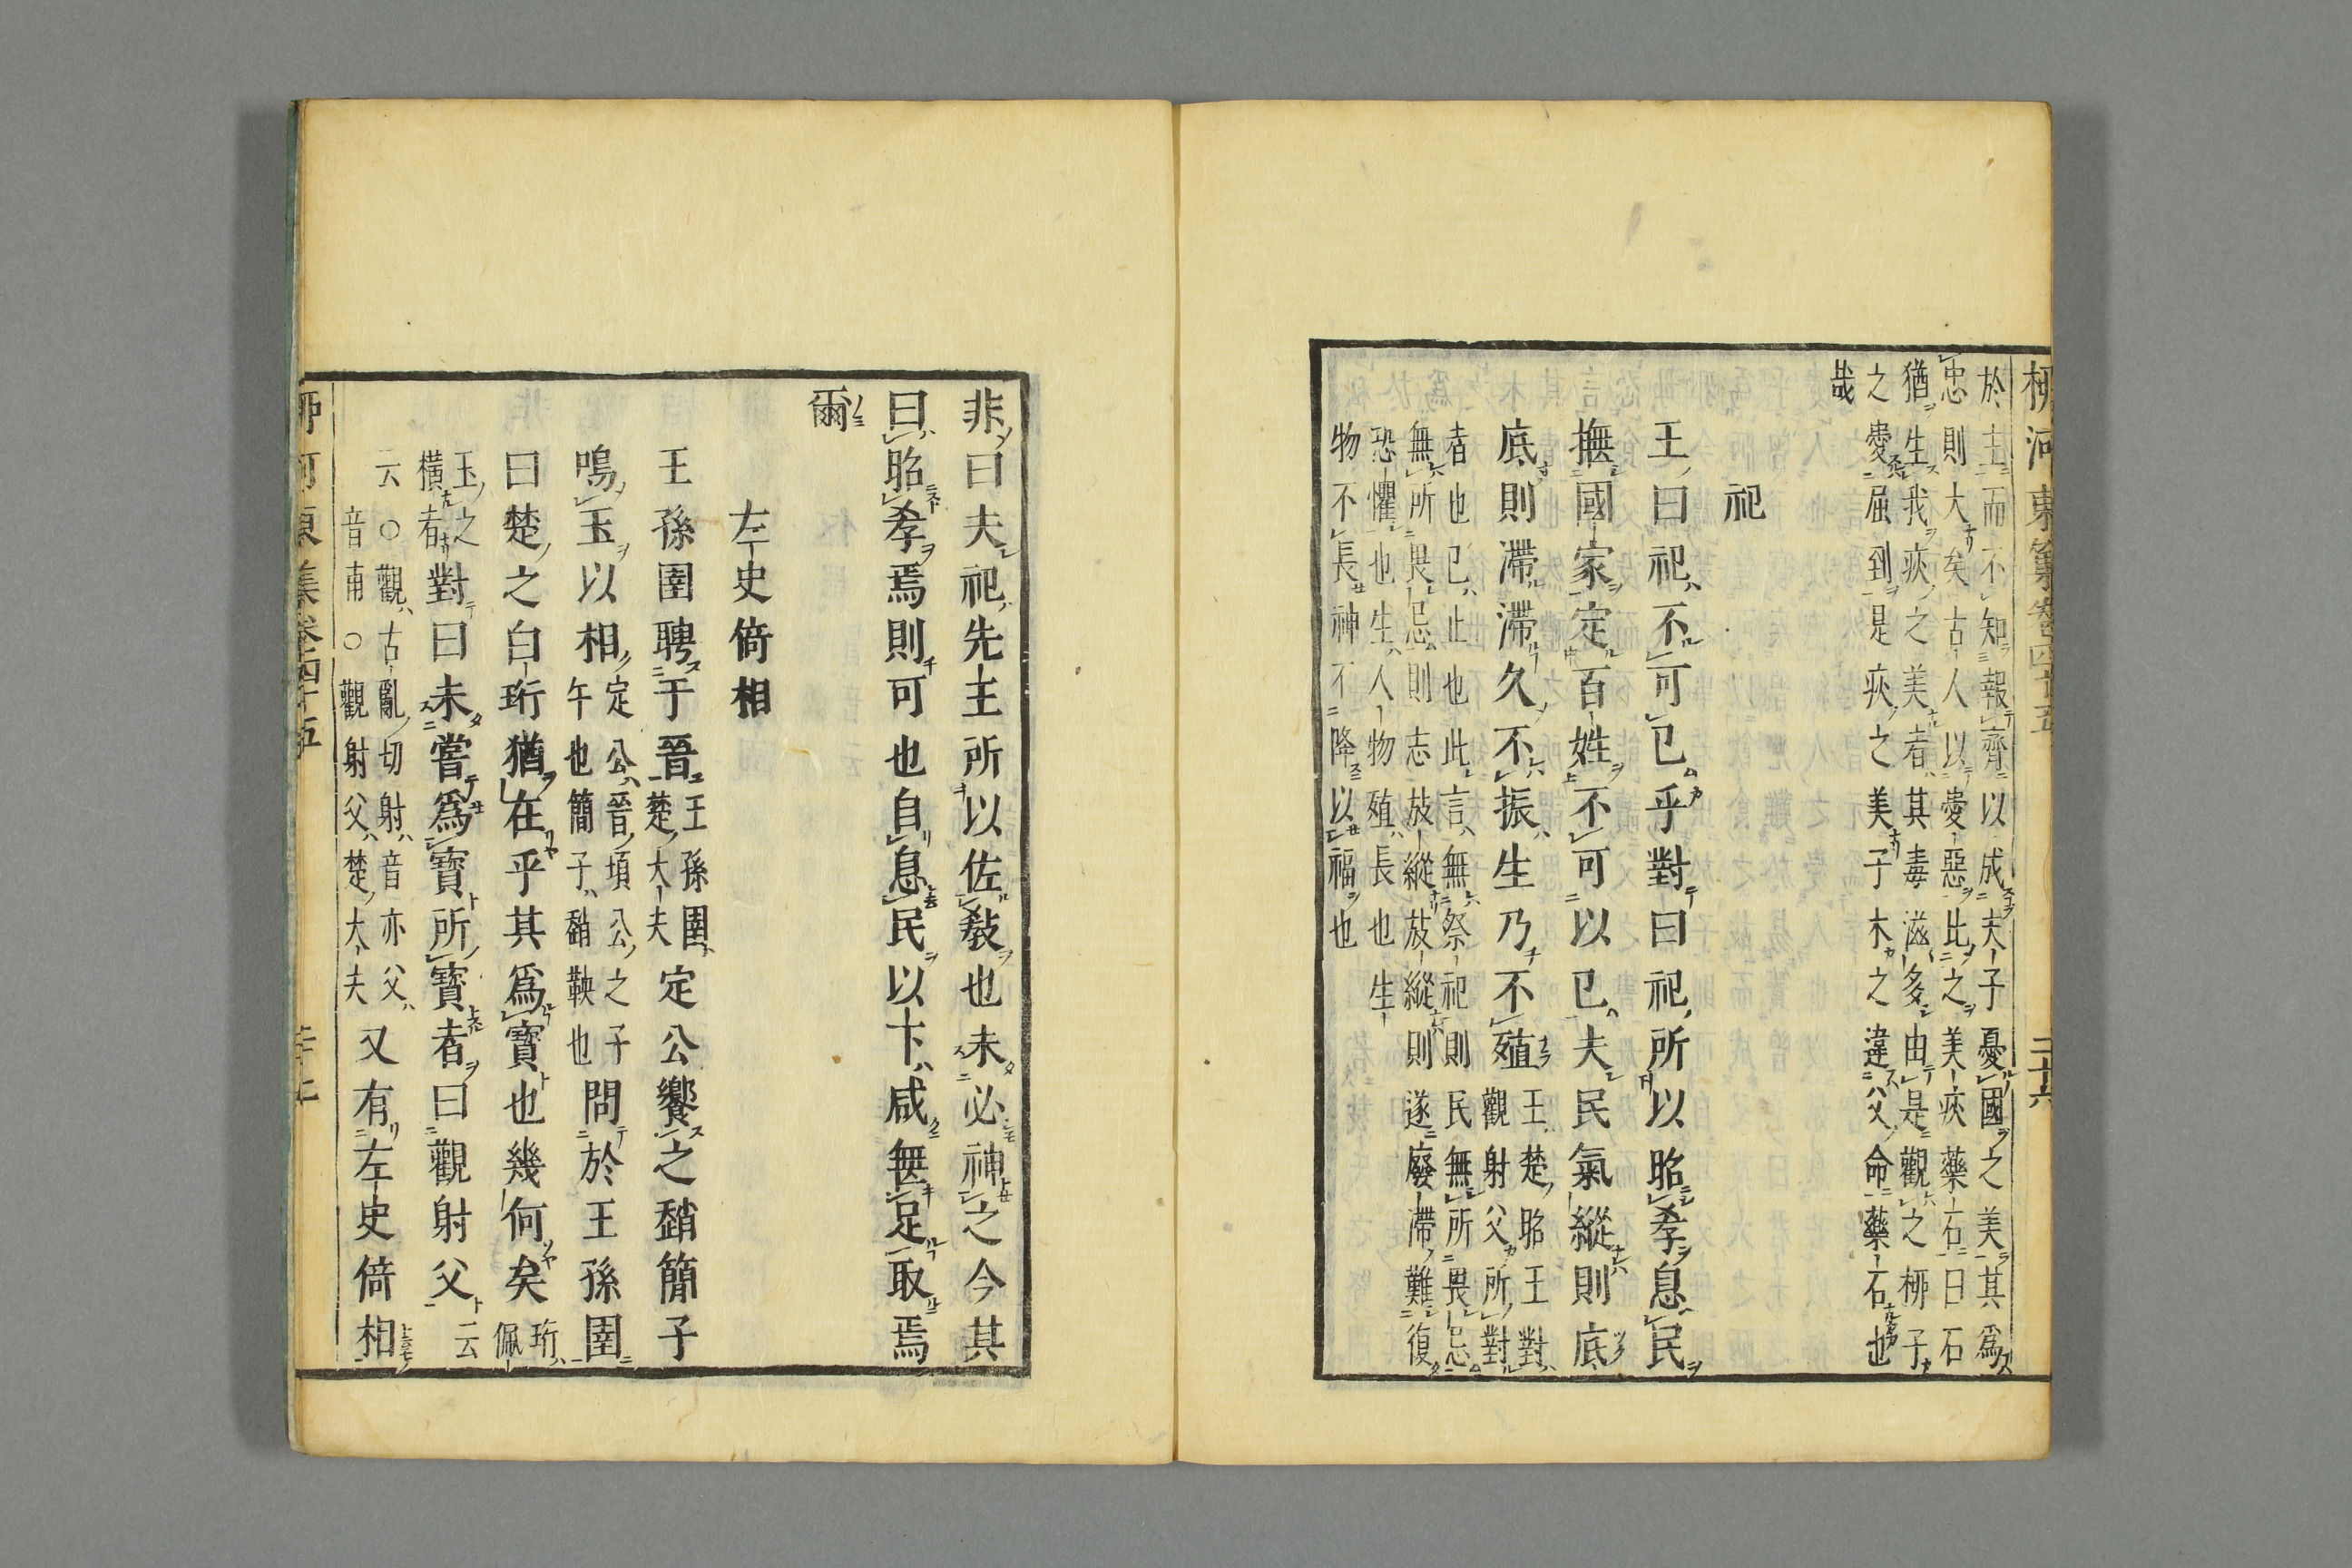 柳河東集卷四十五 二十六
於主而不知報齊以成夫子憂國之美其爲
忠則大矣古人以愛惡比之美疢藥石曰石
猶生我疢之美者其毒滋多由是觀之柳子
之愛屈到是疢之美子木之違父命藥石也
哉
祀
王曰祀不可已乎對曰祀所以昭孝息民
撫國家定百姓不可以已夫民氣縱則底
底則滯滯久不振生乃不殖王楚昭王對
觀射父所對
者也已止也此言無祭祀則民無所畏忌
無所畏忌則志放縱放縱則遂廢滯難復
恐懼也生人物殖長也生
物不長神不降以福也
非曰夫祀先王所以佐敎也未必神之今其
曰昭孝焉則可也自息民以下咸無足取焉
爾
左史倚相
王孫圉聘于晉王孫圉
楚大夫定公饗之趙簡子
鳴玉以相定公晉頃公之子
午也簡子趙鞅也問於王孫圉
曰楚之白珩猶在乎其爲寶也幾何矣珩
佩
玉之
橫者對曰未嘗爲寶所寶者曰觀射父云
云○觀古亂切射音亦父
音甫○觀射父楚大夫又有左史倚相
柳河東集卷四十五